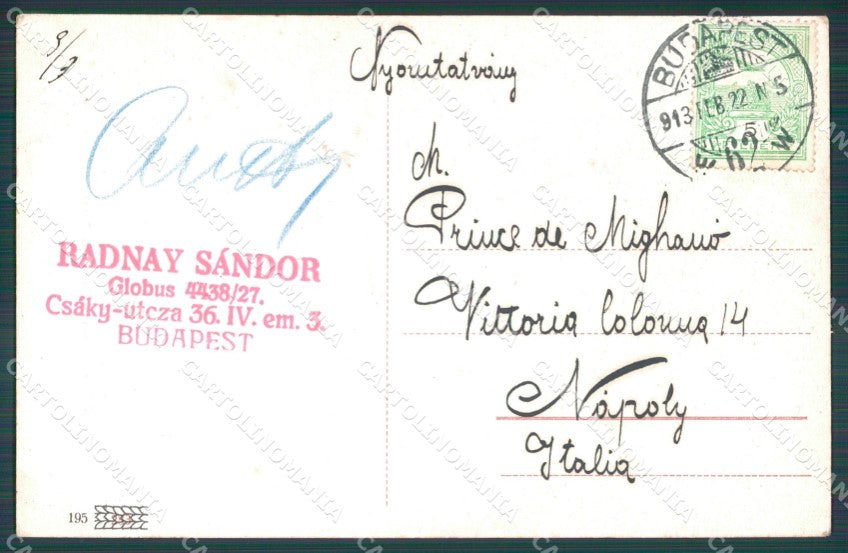 9/3
Nyomtatvány
BUDAPEST
913 FEB 22 N 5
62
M.
Prince de Mighanó
Vittoria Colonna 14
Nápoly
Italia
RADNAY SÁNDOR
Globus 4438/27.
Csáky-utcza 36. IV. em. 3.
BUDAPEST
195
CARTOLINOMANIA